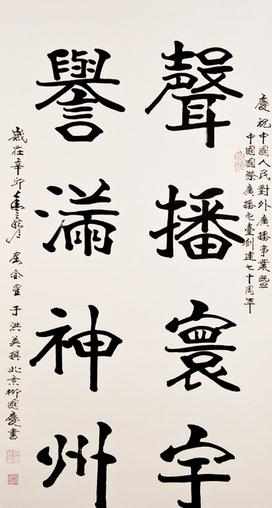 慶祝中國人民對外廣播事業暨
中國國際廣播电臺創建七十周年
聲播寰宇
譽滿神州
歲在辛卯 于洪英撰北京 書